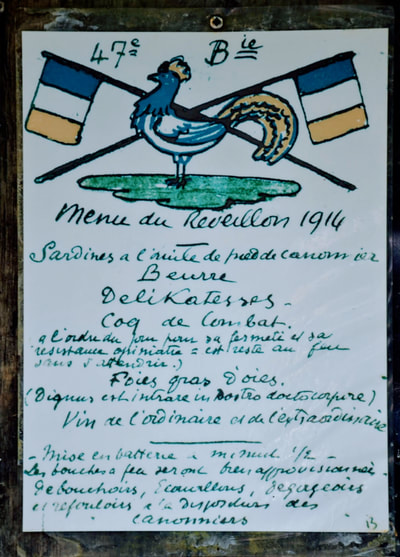 47e Bie
Menu du Reveillon 1914
Sardines a l'huile de pied de canonnier
Beurre
Delikatesses -
Coq de Combat.
a l'ordre du jour pour sa fermeté et sa
resistance opiniatre = est resté au feu
sans s'attendrir.)
Foies gras d'oies.
(Dignus est intrare in nostro docto corpore)
Vin de l'ordinaire et de l'extraordinaire
- Mise en batterie a minuit 1/2 -
Les bouches a feu seront bien approvisionnées
De bouchoirs, Ecouvillons, degageoirs
et refouloirs a la disposition des
canonniers